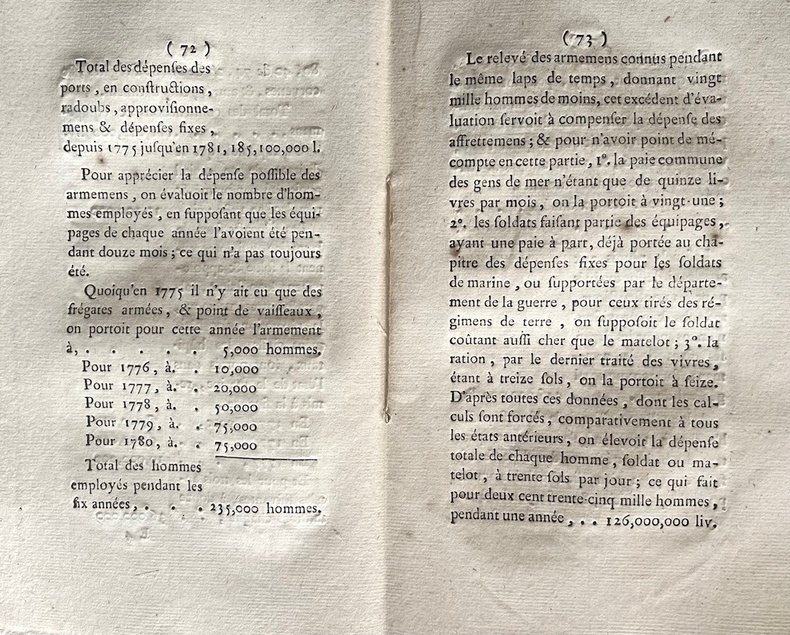 ( 72 )
Total des dépenſes des
ports, en conſtructions,
radoubs, approviſionne-
mens & dépenſes fixes,
depuis 1775 juſqu'en 1781, 185,100,000 l.
Pour apprécier la dépenſe poſſible des
armemens, on évaluoit le nombre d'hom-
mes employés, en ſuppoſant que les équi-
pages de chaque année l'avoient été pen-
dant douze mois; ce qui n'a pas toujours
été.
Quoiqu'en 1775 il n'y ait eu que des
frégates armées, & point de vaiſſeaux,
on portoit pour cette année l'armement
à, . . . . . 5,000 hommes.
Pour 1776, à. . 10,000
Pour 1777, à. . 20,000
Pour 1778, à. . 50,000
Pour 1779, à. . 75,000
Pour 1780, à. . 75,000
Total des hommes
employés pendant les
ſix années, . . . 235,000 hommes.
( 73 )
Le relevé des armemens connus pendant
le même laps de temps, donnant vingt
mille hommes de moins, cet excédent d'éva-
luation ſervoit à compenſer la dépenſe des
affretremens; & pour n'avoir point de mé-
compte en cette partie, 1°. la paie commune
des gens de mer n'étant que de quinze li-
vres par mois, on la portoit à vingt-une;
2°. les ſoldats faiſant partie des équipages,
ayant une paie à part, déjà portée au cha-
pitre des dépenſes fixes pour les ſoldats
de marine, ou ſupportées par le départe-
ment de la guerre, pour ceux tirés des ré-
gimens de terre, on ſuppoſoit le ſoldat
coûtant auſſi cher que le matelot; 3°. la
ration, par le dernier traité des vivres,
étant à treize ſols, on la portoit à ſeize.
D'après toutes ces données, dont les cal-
culs ſont forcés, comparativement à tous
les états antérieurs, on élevoit la dépenſe
totale de chaque homme, ſoldat ou ma-
telot, à trente ſols par jour; ce qui fait
pour deux cent trente-cinq mille hommes,
pendant une année, . . 126,000,000 liv.